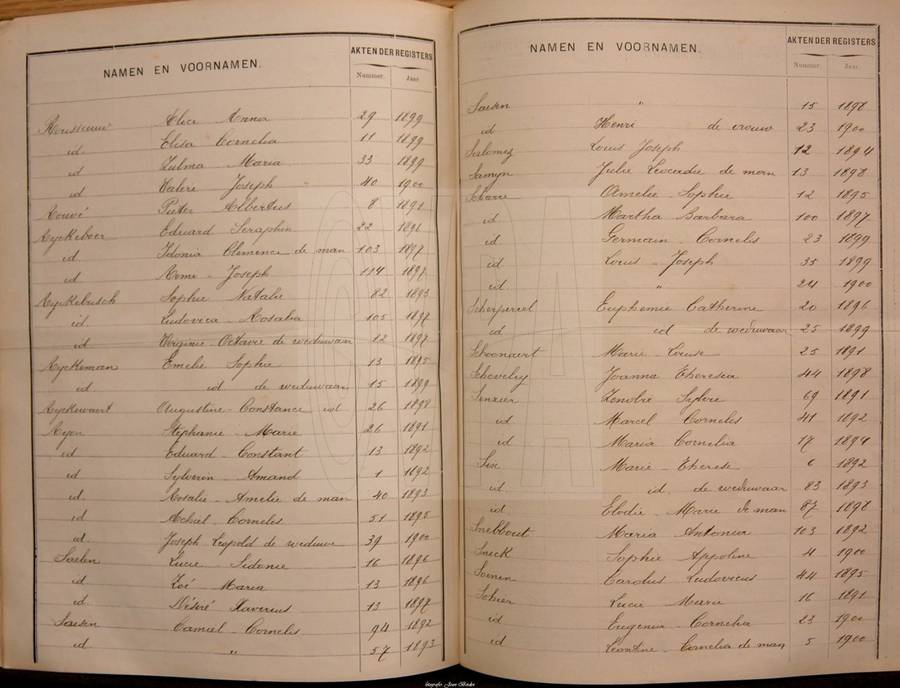 NAMEN EN VOORNAMEN. AKTEN DER REGISTERS
Nummer. Jaar.
Rousseeuw Elice Maria 29 1899
id. Elisa Cornelia 11 1899
id Zulma Maria 33 1899
id Valere Joseph 40 1900
Rouvé Pieter Albertus 8 1891
Ryckeboer Eduard Seraphin 22 1896
id Idonia Clemence de man 103 1897
id Remi - Joseph 114 1897
Ryckebusch Sophie Natalie 82 1893
id. Ludovica - Rosalia 105 1897
id Virginie - Octavie de weduwaar 12 1897
Ryckeman Emelie Sophie 13 1895
id id de weduwaar 15 1899
Ryckewaert Augustine - Constance id 26 1898
Ryon Stephanie - Marie 26 1891
id Eduard Constant 13 1892
id Sylverin - Amand 1 1892
id Rosalie - Amelie de man 40 1893
id Achiel - Cornelis 51 1895
id Joseph Leopold de weduwe 39 1900
Saelen Lucie - Sidonie 16 1896
id Zoé Maria 13 1896
id. Désiré Xaverius 13 1897
Saesen Camiel - Cornelis 94 1892
id " 57 1893
NAMEN EN VOORNAMEN. AKTEN DER REGISTERS
Nummer. Jaar.
Saesen " 15 1898
id Henri de vrouw 23 1900
Salomez Louis Joseph 12 1894
Samyn Julie Leocadie de man 13 1898
Amelie - Sophie 12 1895
id Martha Barbara 100 1897
id Germain - Cornelis 23 1899
id Louis - Joseph 35 1899
id " 24 1900
Scherpereel Euphemie Catherine 20 1896
id id de weduwaar 25 1899
Schoonaert Marie - Louise 25 1891
Joanna Theresia 44 1898
Zenobie Sylvie 69 1891
id Marcel Cornelis 41 1892
id Maria Cornelia 17 1894
Six Marie - Therese 6 1892
id id. de weduwaar 83 1893
id Elodie - Marie de man 87 1898
Snebbout Maria Antonia 103 1892
Sneck Sophie Appoline 4 1900
Carolus Ludovicus 44 1895
Sohier Lucie Marie 16 1891
id Eugenia - Cornelia 23 1900
id Leontine - Cornelia de man 5 1900